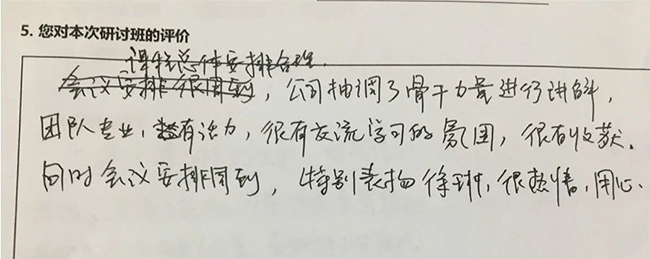 5. 您对本次研讨班的评价
课程总体安排合理
会议安排很周到，公司抽调了骨干力量进行讲解，
团队专业，有活力，很有交流学习的氛围，很有收获.
同时会议安排周到，特别表扬徐琳，很热情，用心.